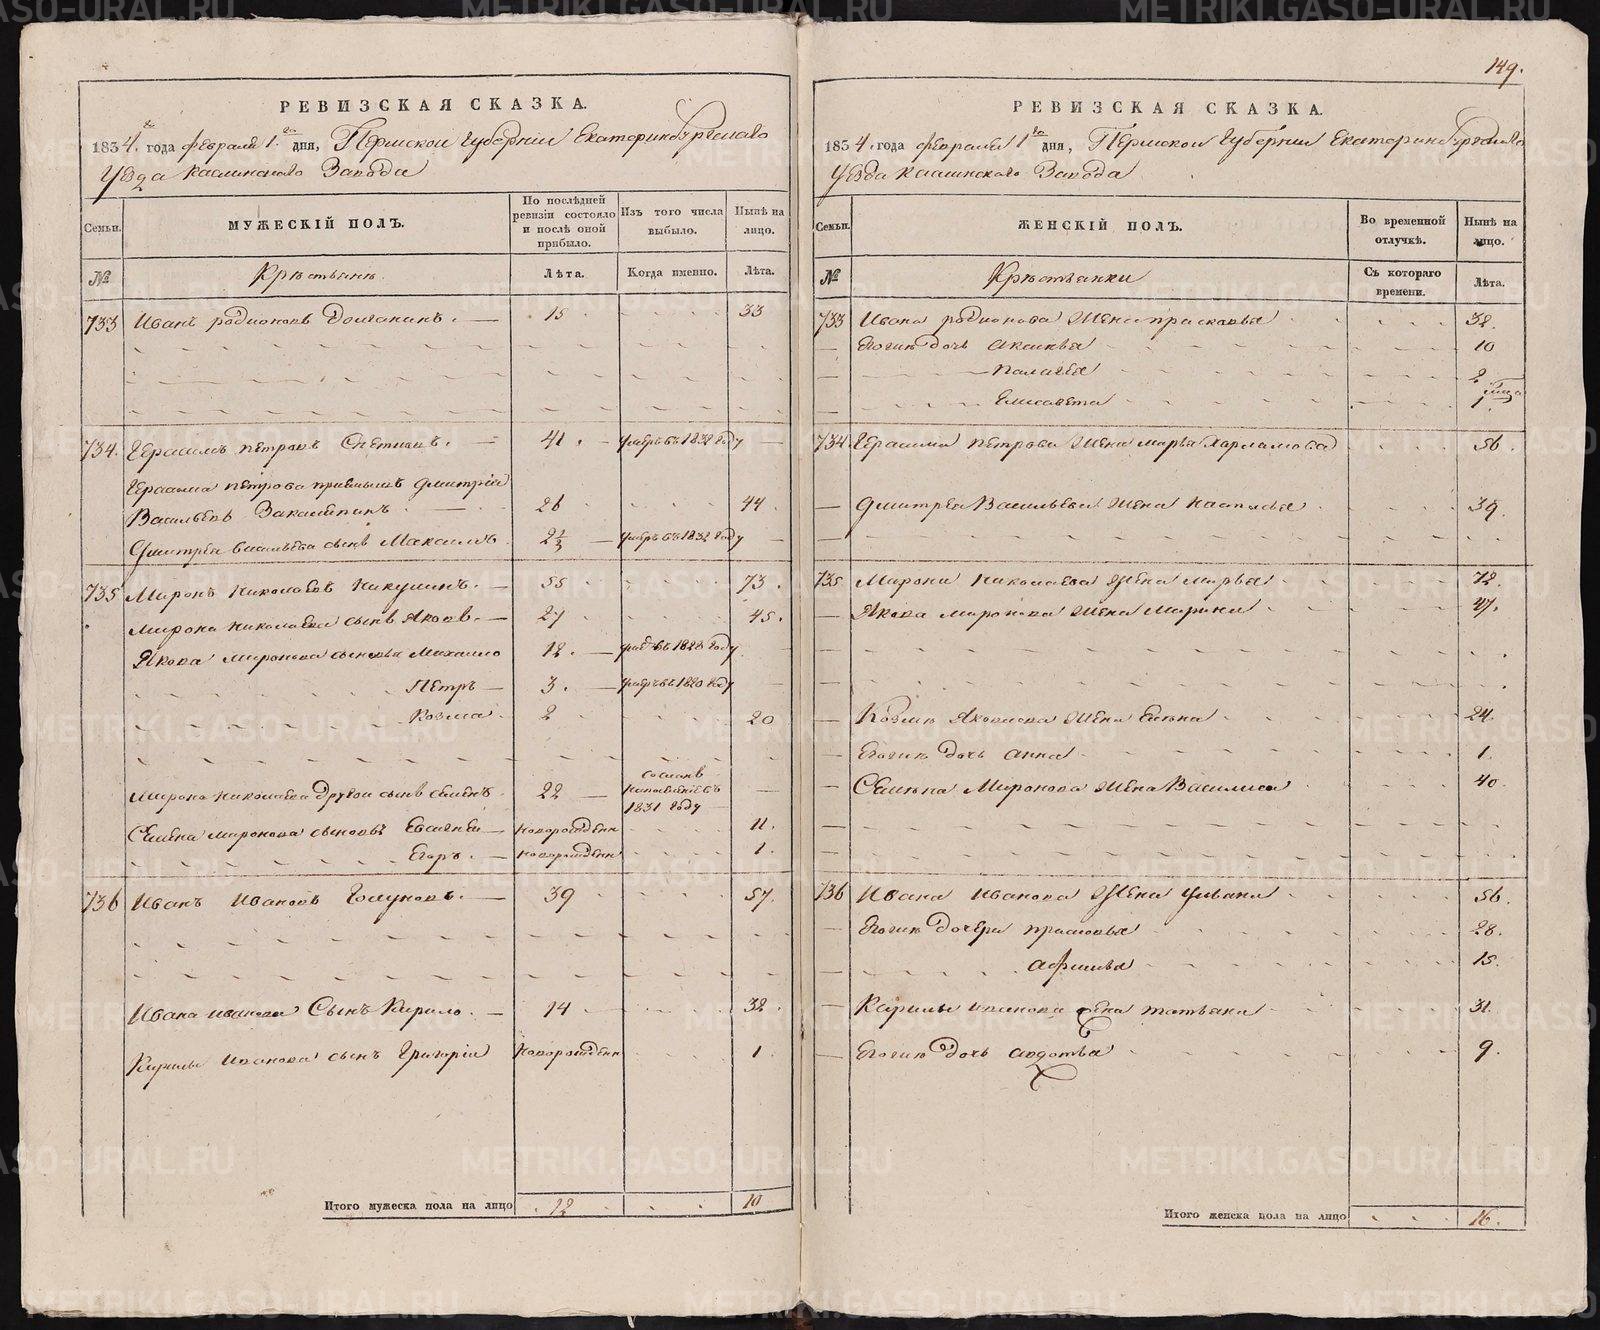 149.
РЕВИЗСКАЯ СКАЗКА.
1834. года февраля 1. дня, Пермской Губернии Екатеринбургскаго
Уезда Каслинскаго Завода
Семьи.
МУЖЕСКІЙ ПОЛЪ.
По послѣдней ревизіи состояло и послѣ оной прибыло.
Изъ того числа выбыло.
Нынѣ на лицо.
№
Крестьяне.
Лѣта.
Когда именно.
Лѣта.
733 Иванъ родионовъ 15 33
734. Герасимъ петровъ 41. умеръ въ 1832 году
Герасима петрова приемышъ дмитрій
Васильевъ 26 44
Дмитрея васильева сынъ Максимъ 2 умеръ въ 1832 году
735 Миронъ Николаевъ Никулинъ. 55 73.
Мирона николаева сынъ Яковъ. 27 45.
Якова миронова сыновья Михаило 12. въ 1828 году
Петръ 3. умеръ въ 1820 году
Козма 2 20
Мирона николаева другой сынъ семенъ 22 1831 году
Семена миронова сыновья новорожденн 11.
Егоръ. новорожденн 1.
736 Иванъ Ивановъ 39 57.
Ивана иванова Сынъ Кирило. 14 32.
Кирилы иванова сынъ Григорій новорожденн 1.
Итого мужеска пола на лицо 12 10
РЕВИЗСКАЯ СКАЗКА.
1834. года февраля 1 дня, Пермской Губернии Екатеринбургскаго
Уезда Каслинскаго Завода
Семьи.
ЖЕНСКІЙ ПОЛЪ.
Во временной отлучкѣ.
Нынѣ на лицо.
№
Крестьянки
Съ котораго времени.
Лѣта.
733 Ивана родионова Жена прасковья 32.
Егоже дочь 10
Палагея 2
Елисавета 1
734 Герасима петрова Жена марья Харламова 56.
Дмитрея Васильева Жена настасья 39.
735 Мирона Николаева Жена Марья 72.
Якова миронова Жена Марина 47.
Козмы Яковлева Жена 24.
Егоже дочь анна 1.
Семена Миронова Жена Василиса 40.
736 Ивана Иванова Жена ульяна 56.
Егоже дочери прасковья 28.
афимья 15.
Кирилы иванова жена татьяна 31.
Егоже дочь авдотья 9.
Итого женска пола на лицо 16.
METRIKI.GASO-URAL.RU